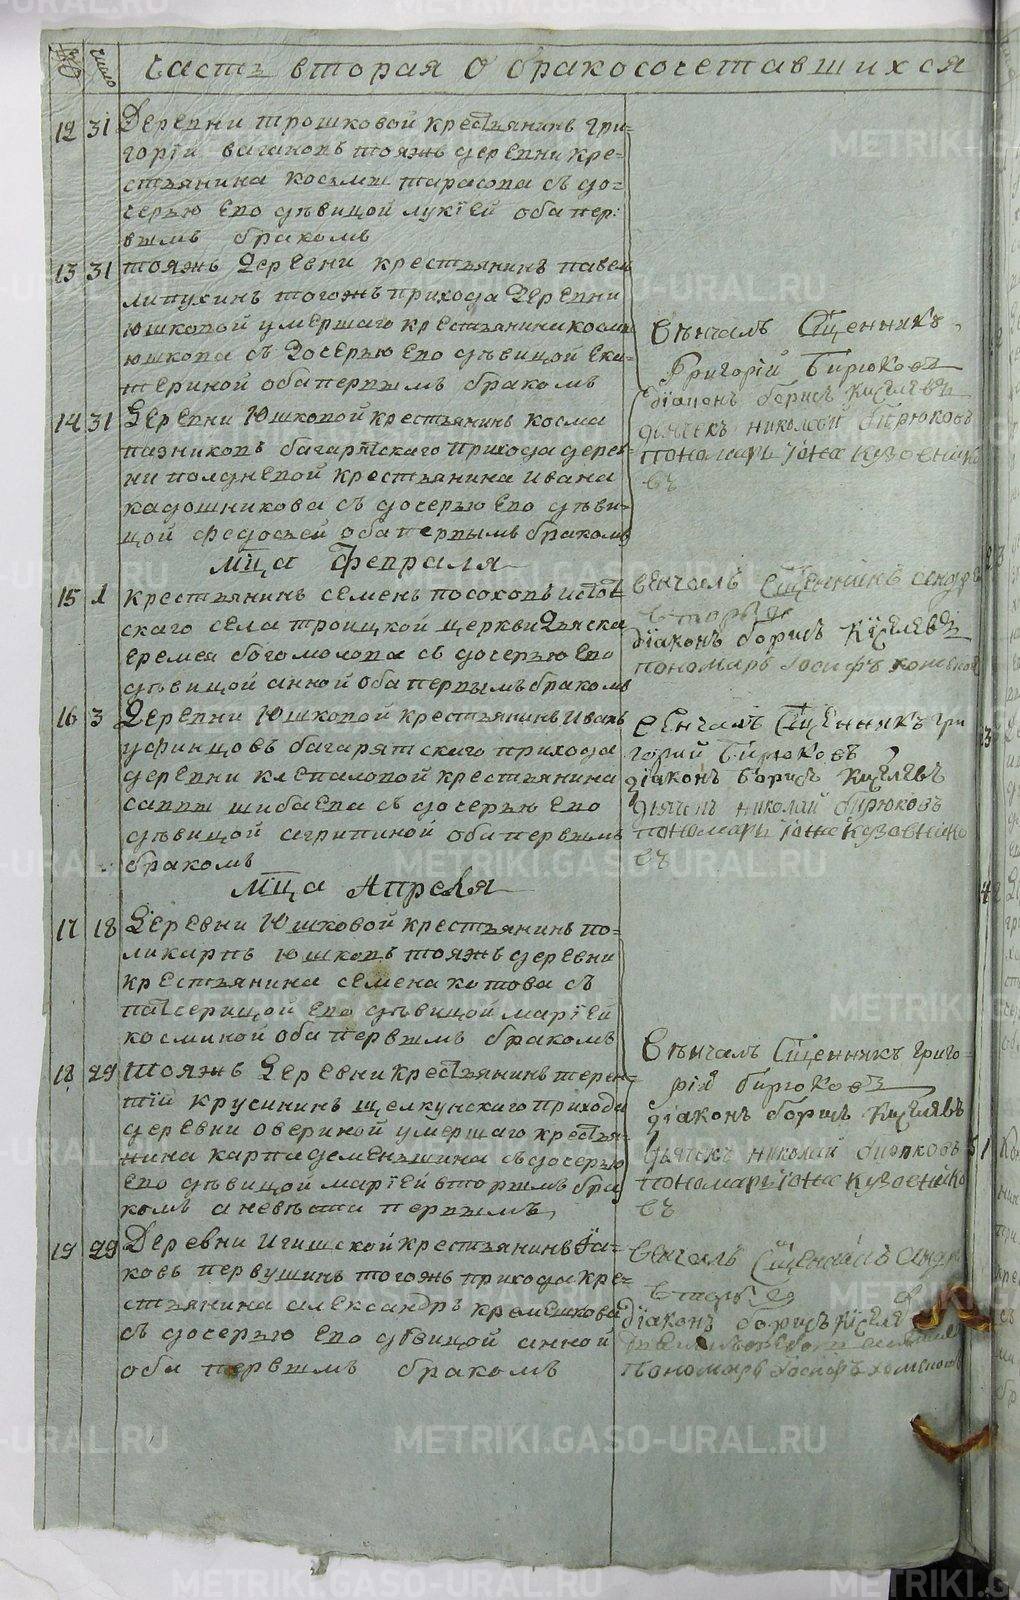 № число Часть вторая о бракосочетавшихся
12 31 Деревни трошковой крестьянинъ гри-
горiй вагановъ тояжъ деревни кре-
стьянина косьмы тарасова съ до-
черью его дѣвицой лукiей оба пер-
вымъ бракомъ
13 31 тояжъ деревни крестьянинъ павелъ
липухинъ тогожъ прихода деревни
юшковой умершаго крестьянина космы
юшкова съ дочерью его дѣвицой ека-
териной оба первымъ бракомъ
14 31 Деревни Юшковой крестьянинъ косма
пазниковъ багаряцкаго прихода дерев-
ни полдневой крестьянина ивана
кадошникова съ дочерью его дѣви-
цой федосьей оба первымъ бракомъ
вѣнчалъ Сщенникъ
Григорiй Бирюковъ
дiаконъ борисъ Киселевъ
дьячекъ николай бирюковъ
пономарь iона кузовнико
въ
мца февраля
15 1 крестьянинъ семенъ посоховъ
скаго села троицкой церкви дьячка
еремея богомолова съ дочерью его
дѣвицой анной оба первымъ бракомъ
венчалъ Сщенникъ
дiаконъ борисъ Киселевъ
пономарь Iосифъ
16 3 Деревни Юшковой крестьянинъ Иванъ
уфинцовъ багарятскаго прихода
деревни клепаловой крестьянина
саввы шибаева съ дочерью его
дѣвицой агрипиной оба первымъ
бракомъ
венчалъ Сщенникъ гри
горiй Бирюковъ
дiаконъ борисъ Киселевъ
дьячекъ николай бирюковъ
пономарь iона кузовнико
въ
Мца Апреля
17 18 Деревни Юшковой крестьянинъ по-
ликарпъ юшковъ тояжъ деревни
крестьянина семена котова съ
патчерицой его дѣвицой марiей
косминой оба первымъ бракомъ
18 29 тояжъ деревни крестьянинъ терен-
тiй крусининъ щелкунскаго прихода
деревни овериной умершаго крестья-
нина карпа деменьшина съ дочерью
его дѣвицой марiей вторымъ бра
комъ а невѣста первымъ
Вѣнчалъ Сщенникъ григо-
рiй бирюковъ
дiаконъ борисъ Киселевъ
дьячекъ николай бирюковъ
пономарь iона кузовнико
въ
19 29 Деревни Игишской крестьянинъ Iа-
ковъ первушинъ тогожъ прихода кре-
стьянина александръ кремешкова
съ дочерью его дѣвицой анной
оба первымъ бракомъ
венчалъ Сщенникъ
дiаконъ борисъ
пономарь Iосифъ
METRIKI.GASO-URAL.RU